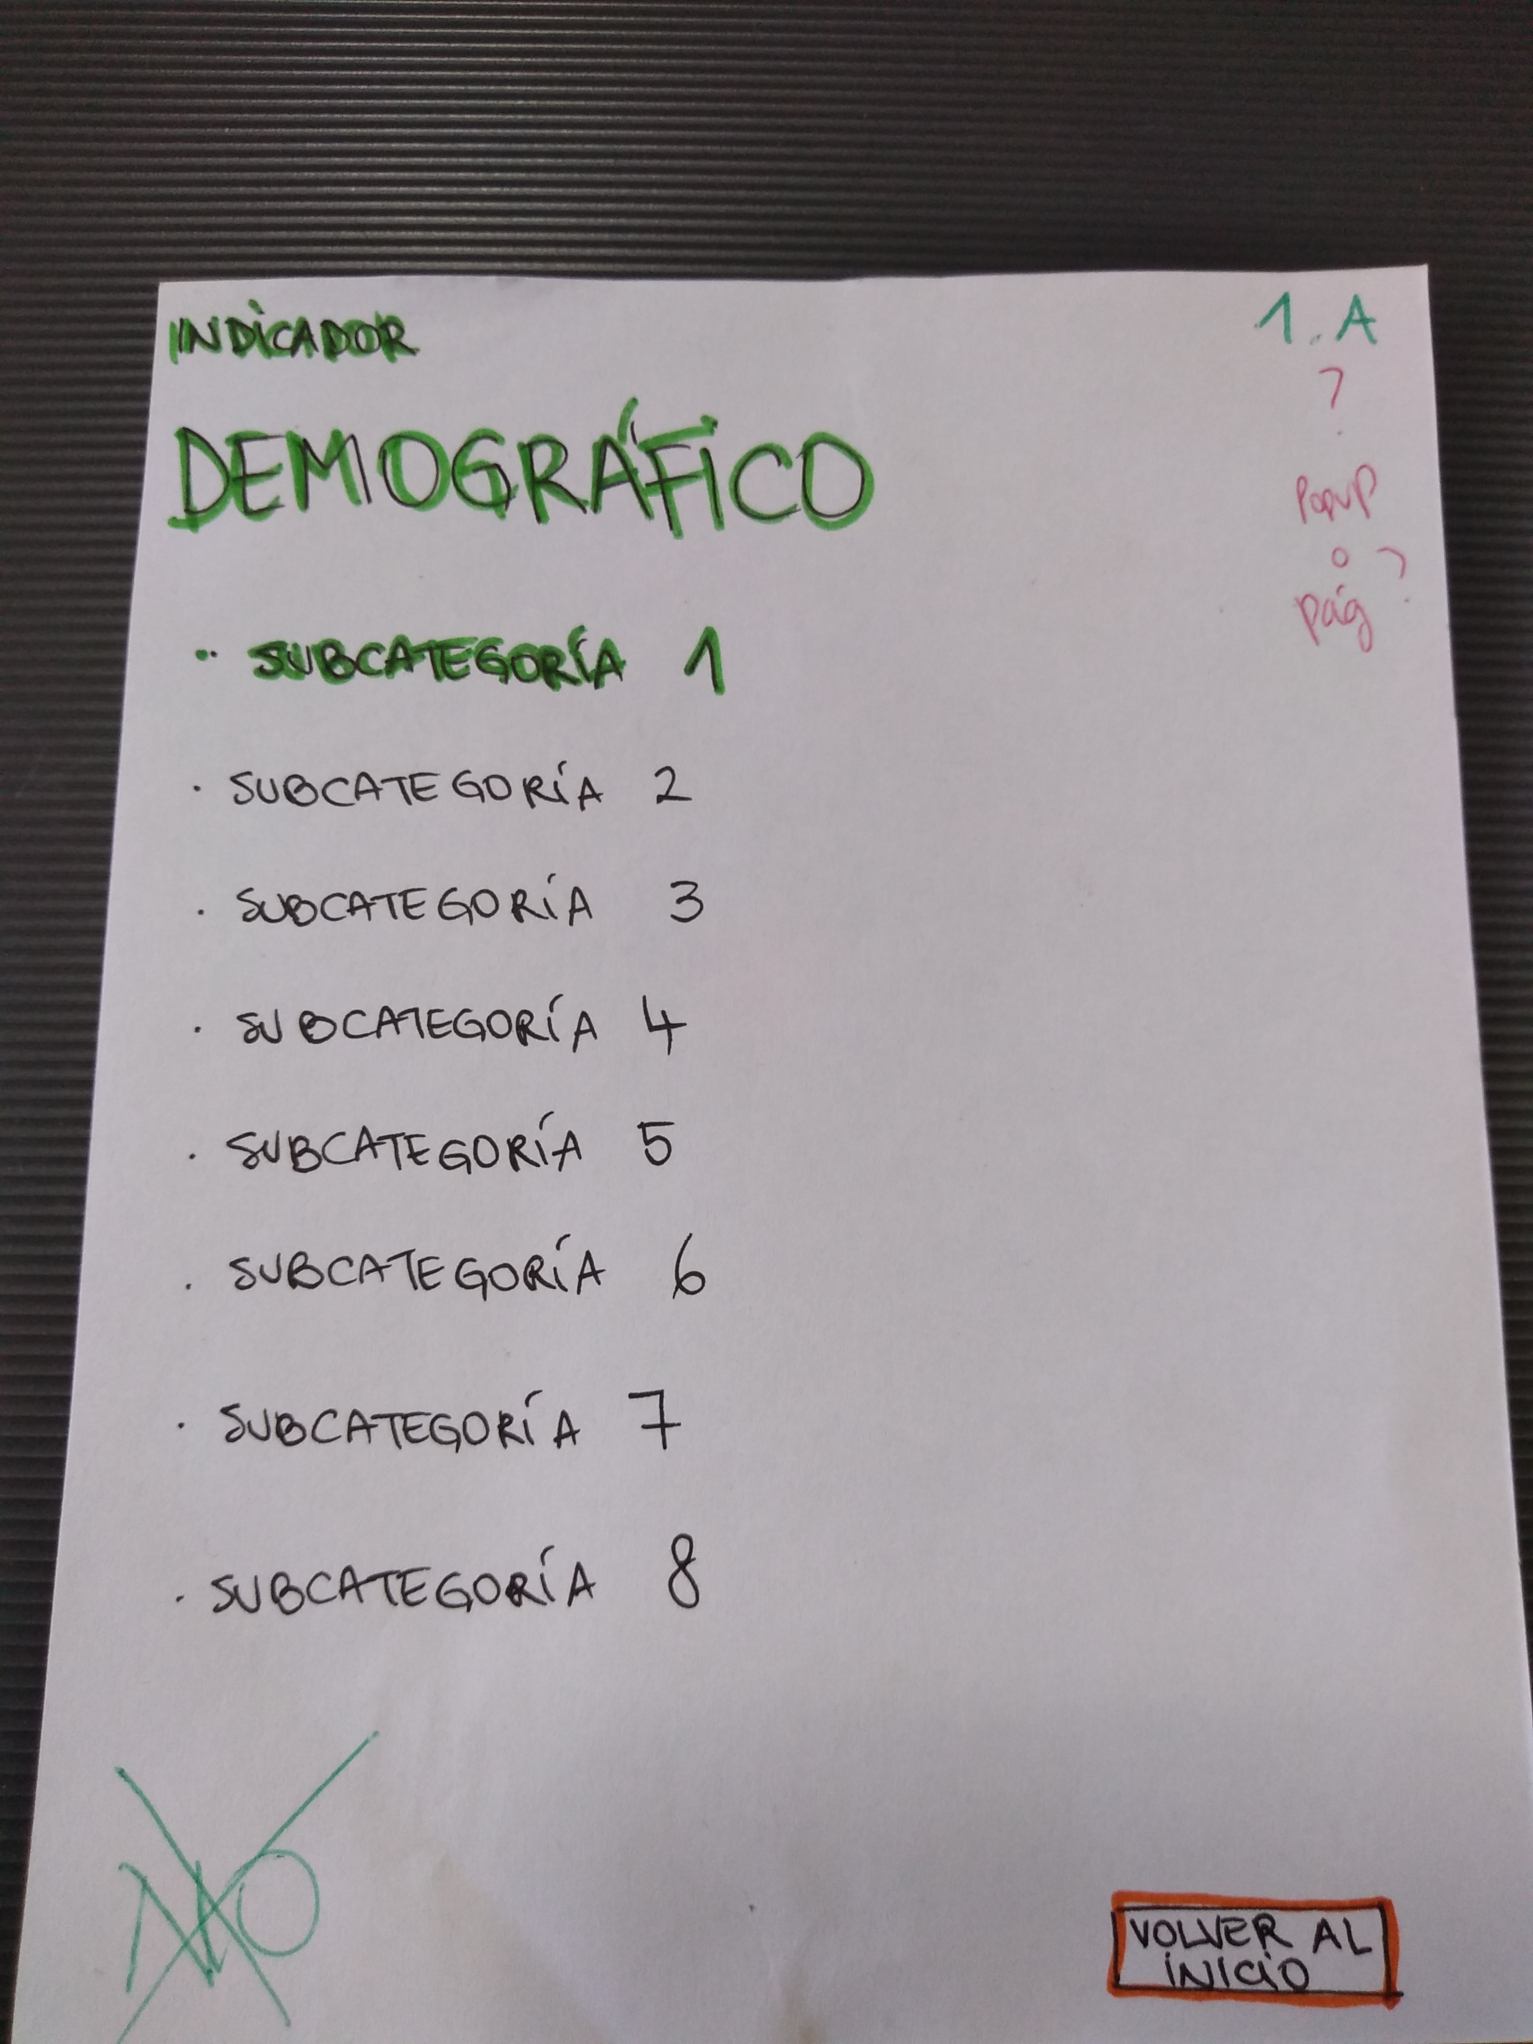 INDICADOR
1.A
?
DEMOGRÁFICO
POPUP
o ?
pág
· SUBCATEGORÍA 1
· SUBCATEGORÍA 2
· SUBCATEGORÍA 3
· SUBCATEGORÍA 4
· SUBCATEGORÍA 5
· SUBCATEGORÍA 6
· SUBCATEGORÍA 7
· SUBCATEGORÍA 8
NO
VOLVER AL
INICIO